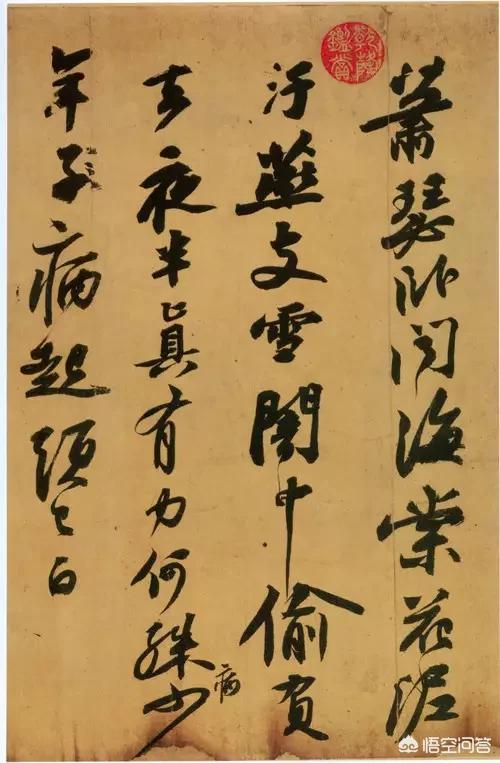 乾隆鑑賞
蕭瑟臥聞海棠花泥
汙燕支雪闇中偷負
去夜半真有力何殊少
病
年子病起頭已白
悟空问答